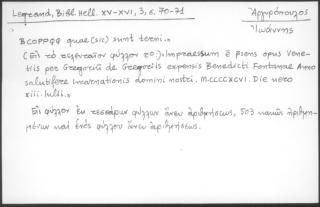 Legrand, Bibl. Hell. XV-XVI, 3, σ. 70-71
Ἀργυρόπουλος
Ἰωάννης
quae (sic) sunt terni.»
(Εἰς τὸ τελευταῖον φύλλον ro:). «Impraessum è psons opus Vene-
tiis per Gregoriũ de Gregoriis expensis Benedicti Fontanae Anno
salutiferę Incarnationis domini nostri. M.CCCCXCVI. Die vero
xiii. Iulii.»
Εἰς φύλλον ἐκ τεσσάρων φύλλων ἄνευ ἀριθμήσεως, 503 καλῶς ἠριθμη-
μένων καὶ ἑνὸς φύλλου ἄνευ ἀριθμήσεως.